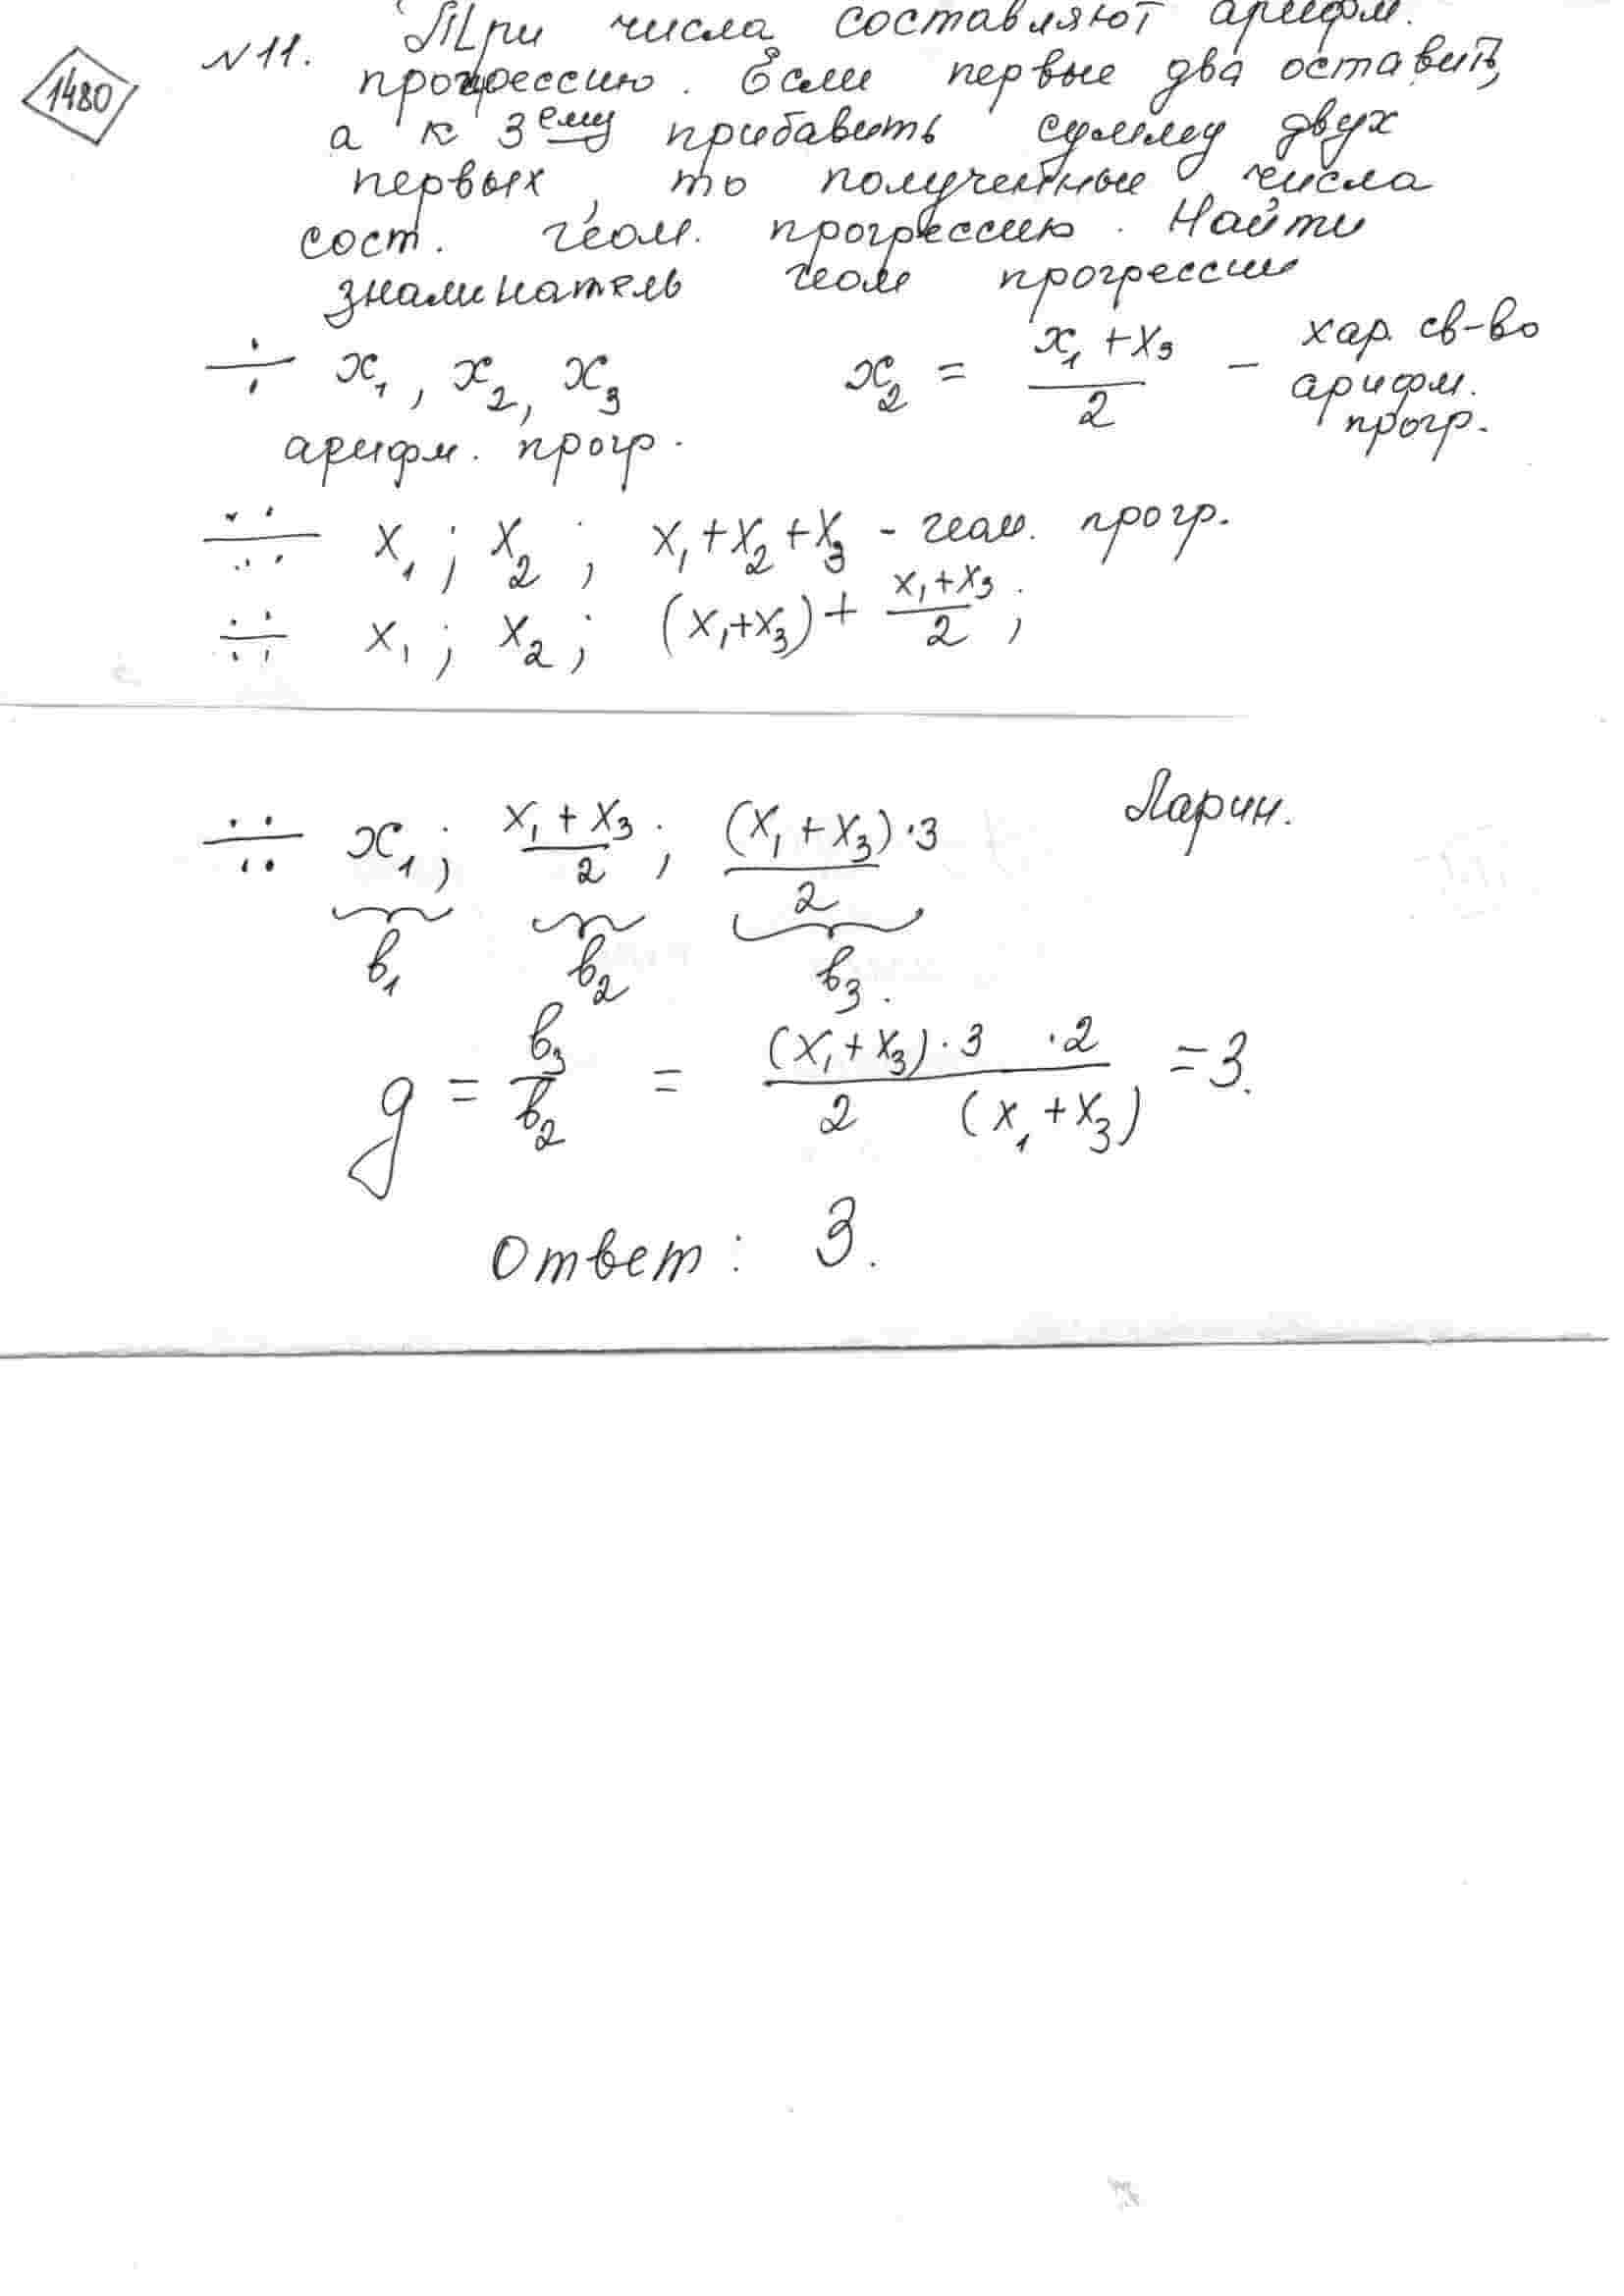 1480
№11. Три числа составляют арифм.
прогрессию. Если первые два оставить,
а к 3ему прибавить сумму двух
первых, то полученные числа
сост. геом. прогрессию. Найти
знаминатель геом прогрессии
÷ x₁, x₂, x₃ x₂ = (x₁ + x₃)/2 – хар. св-во
арифм.
прогр.
арифм. прогр.
∺ x₁; x₂; x₁+x₂+x₃ - геом. прогр.
∺ x₁; x₂; (x₁+x₃) + (x₁+x₃)/2;
Ларин.
∺ x₁; (x₁ + x₃)/2; (x₁ + x₃)·3/2
b₁ b₂ b₃.
q = b₃/b₂ = (x₁+x₃)·3 ·2 / 2 (x₁+x₃) = 3.
Ответ: 3.